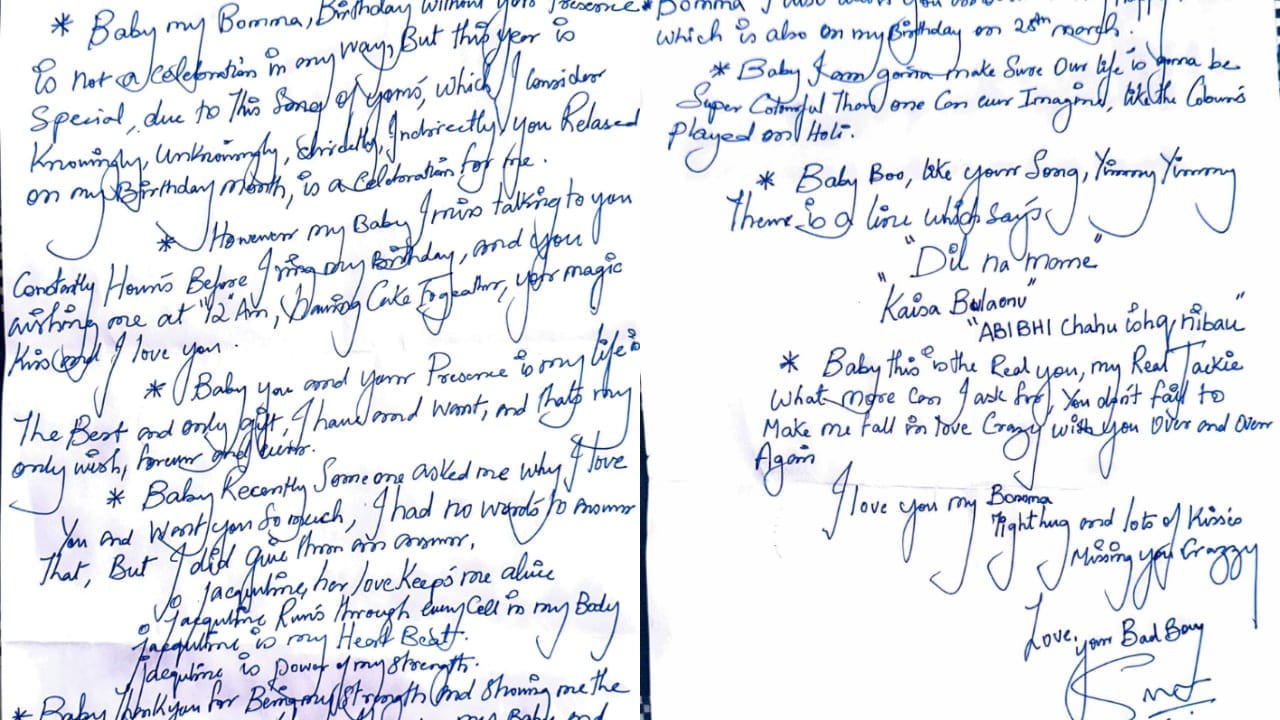 * Baby my Bomma, Birthday without your Presence
is not a celebration in any way, But this year is
Special, due to This Song of yours, which I Consider
Knowingly, Unknowingly, Directly, Indirectly you Relased
on my Birthday month, is a Celebration for me.
* However my Baby I miss talking to you
Constantly Hours Before I ring my Birthday, and you
wishing me at "12" Am, Cake Togeather, your magic
Kiss and I love you.
* Baby you and your Presence is my life's
The Best and only gift, I have and want, and thats my
only wish, forever and ever.
* Baby Recently Some one asked me why I love
You and Want you So much, I had no words to answer
That, But I did give them an answer,
Jacquline, her love Keeps me alive
Jacquline Runs through every Cell in my Body
Jacquline is my Heart Beat.
Jacquline is power of my strength.
* Baby Thank you for Being my strength and showing me the
my Baby and
* Bomma I also
which is also on my Birthday on 25th march.
* Baby I am gonna make Sure Our life is gonna be
Super Colourful Than one Can ever Imagine, like the Colours
Played on Holi.
* Baby Boo, like your Song, Yimmy Yimmy
Theres is a line which says
"Dil na mame"
"Kaisa Bulaonu"
"ABI BHI Chahu ishq nibau"
* Baby this is the Real you, my Real Jackie
What more Can I ask for, You don't fail to
Make me fall in love Crazy with you Over and Over
Again
I love you my Bomma
Tight hug and lots of Kisses
Missing you Crazzy
Love, your Bad Boy